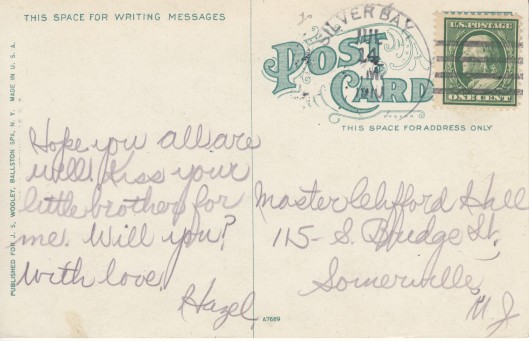 THIS SPACE FOR WRITING MESSAGES
POST CARD
THIS SPACE FOR ADDRESS ONLY
SILVER BAY
JUL
14
M
U.S. POSTAGE
ONE CENT
PUBLISHED FOR J. S. WOOLEY, BALLSTON SPA, N. Y. MADE IN U. S. A.
Hope you all are
well. Kiss your
little brother for
me. Will you?
With love,
Hazel,
Master Clifford Hall
115- S. Bridge St.
Somerville,
N. J
A7689